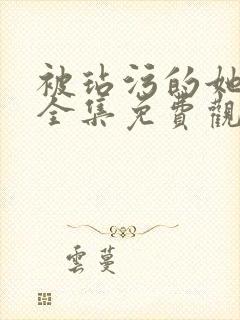 被玷污的她
全集免費觀
雲蔓